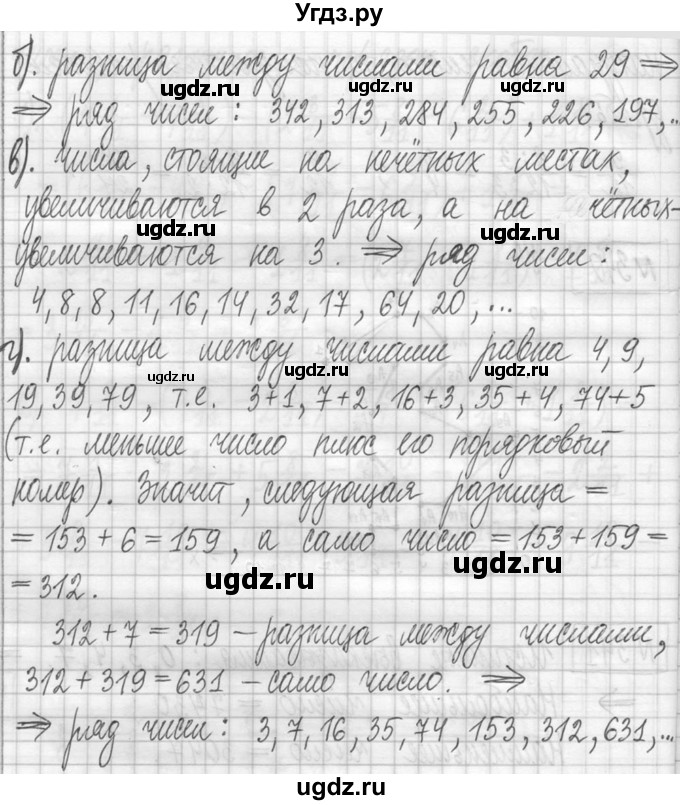 Угдз.ру
б). разница между числами равна 29 ⇒
⇒ ряд чисел : 342, 313, 284, 255, 226, 197, ...
в). числа, стоящие на нечётных местах,
увеличиваются в 2 раза, а на чётных-
увеличиваются на 3. ⇒ ряд чисел :
4, 8, 8, 11, 16, 14, 32, 17, 64, 20, ...
г). разница между числами равна 4, 9,
19, 39, 79, т.е. 3+1, 7+2, 16+3, 35+4, 74+5
(т.е. меньшее число плюс его порядковый
номер). Значит, следующая разница =
= 153 + 6 = 159, а само число = 153 + 159 =
= 312.
312 + 7 = 319 – разница между числами,
312 + 319 = 631 – само число. ⇒
⇒ ряд чисел : 3, 7, 16, 35, 74, 153, 312, 631, ...
ugdz.ru
ugdz.ru
ugdz.ru
ugdz.ru
ugdz.ru
ugdz.ru
ugdz.ru
ugdz.ru
ugdz.ru
ugdz.ru
ugdz.ru